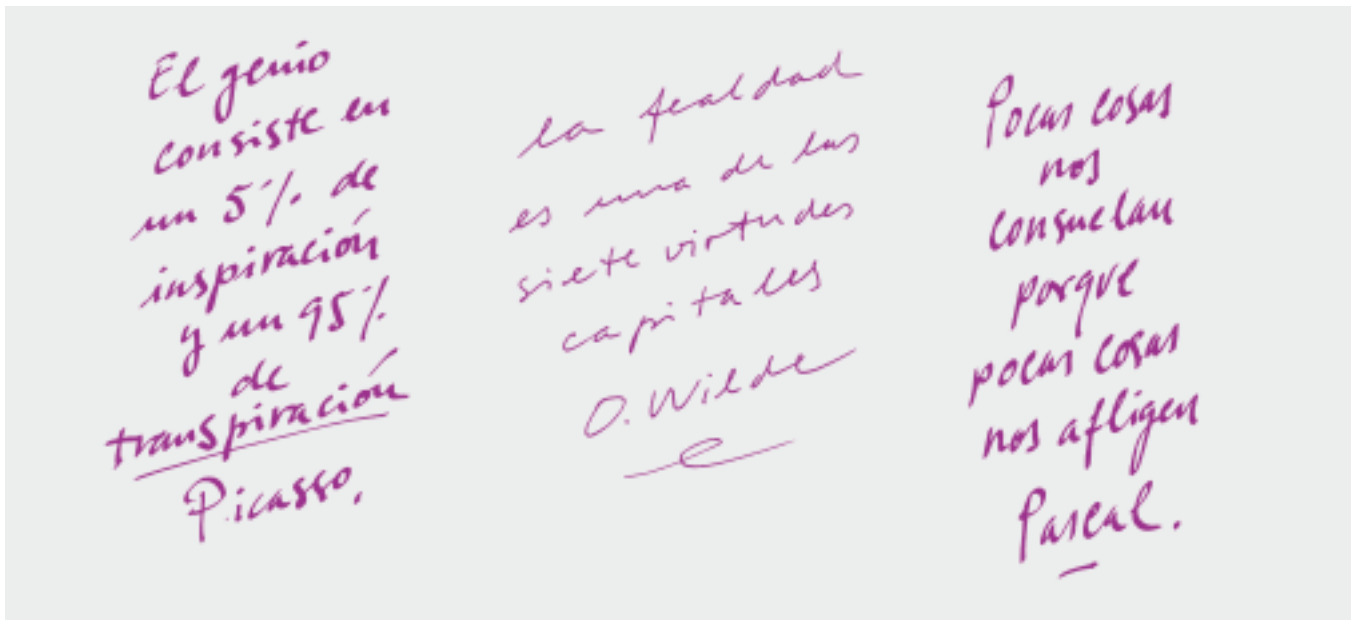 El genio
consiste en
un 5% de
inspiración
y un 95%
de
transpiración
Picasso.
la fealdad
es una de las
siete virtudes
capitales
O. Wilde
Pocas cosas
nos
consuelan
porque
pocas cosas
nos afligen
Pascal.